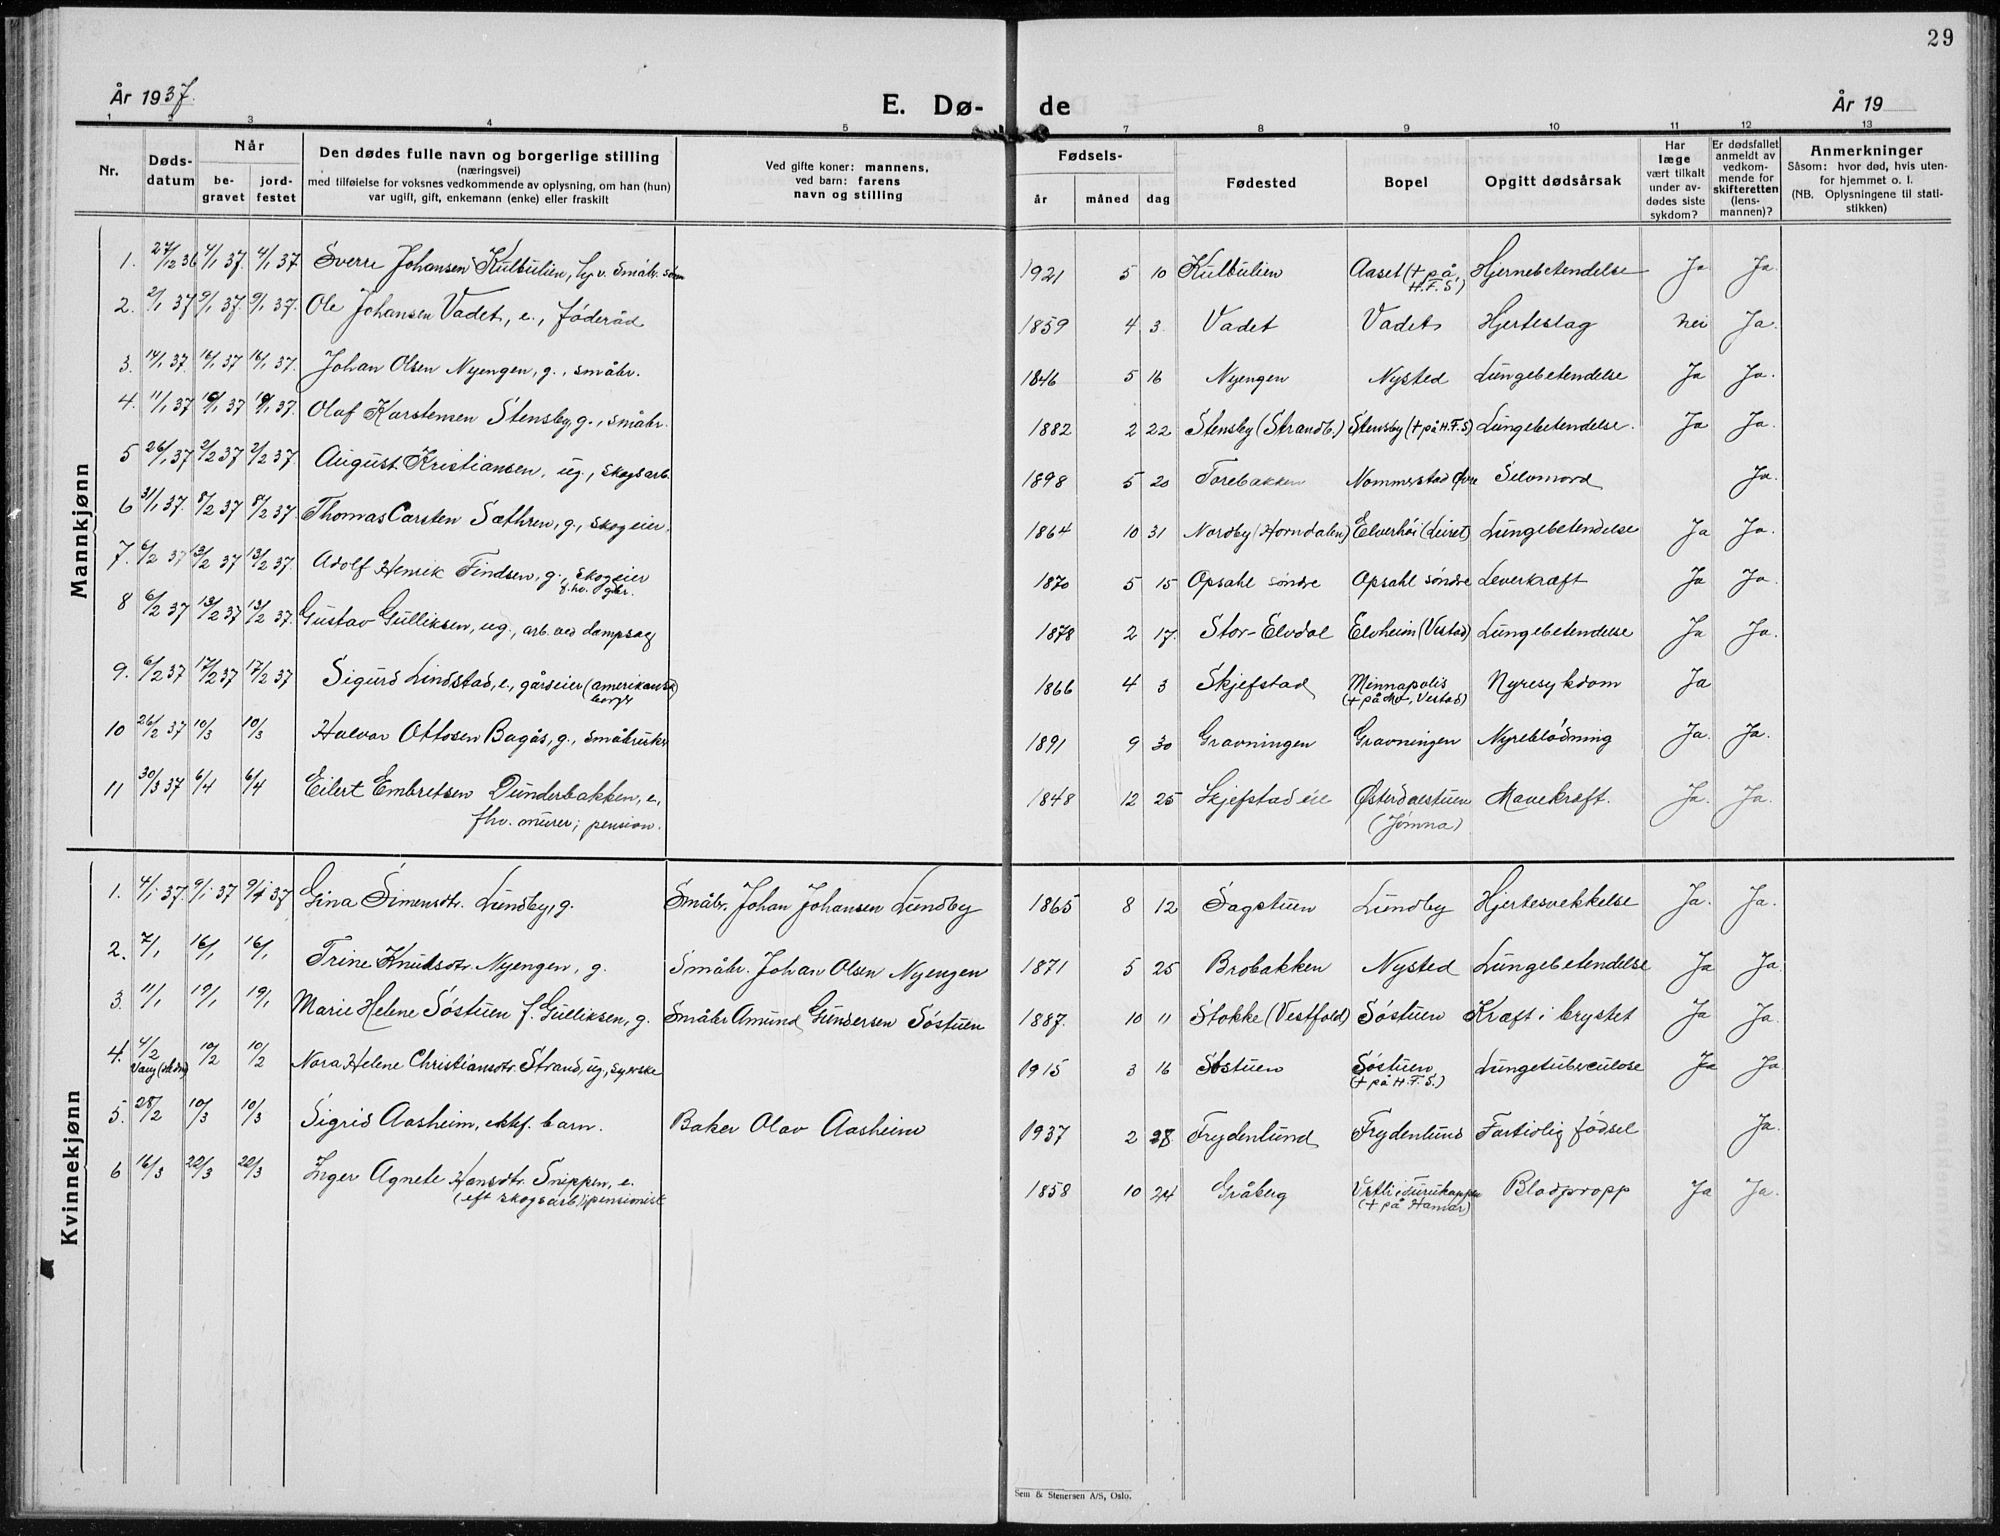 29
År 1937.
E. Dø-
de
År 19
1 2 3 4 5 7 8 9 10 11 12 13
Nr.
Døds-
datum
Når
be-
gravet
jord-
festet
Den dødes fulle navn og borgerlige stilling
(næringsvei)
med tilføielse for voksnes vedkommende av oplysning, om han (hun)
var ugift, gift, enkemann (enke) eller fraskilt
Ved gifte koner: mannens,
ved barn: farens
navn og stilling
Fødsels-
år måned dag
Fødested
Bopel
Opgitt dødsårsak
Har
læge
vært tilkalt
under av-
dødes siste
sykdom?
Er dødsfallet
anmeldt av
vedkom-
mende for
skifteretten
(lens-
mannen)?
Anmerkninger
Såsom: hvor død, hvis uten-
for hjemmet o. l.
(NB. Oplysningene til stati-
stikken)
Mannkjønn
1. 27/12 36 4/1 37. 4/1 37. Sverre Johansen Kulbulien, hj. v. småbr. sønn 1921 5 10 Kulbulien Aaset (+ på Hjernebetendelse Ja Ja.
H.F.S.)
2. 2/1 37 9/1 37. 9/1 37. Ole Johansen Vadet, e., føderåd 1859 4 3. Vadet Vadet Hjerteslag nei Ja.
3. 14/1 37. 16/1 37 16/1 37. Johan Olsen Nyengen, g., småbr. 1846 5 16 Nyengen Nysted Lungebetendelse Ja Ja.
4. 11/1 37 19/1 37 19/1 37. Olaf Karstensen Stensby, g., småbr. 1882 2 22 Stensby (Strandb.) Stensby (+ på H.F.S) Lungebetendelse. Ja Ja.
5 26/1 37 2/2 37 2/2 37. August Kristiansen, ug., skogsarb. 1898 5 20 Torebakken Nommerstad Øvre Selvmord Ja.
6 31/1 37. 8/2 37 8/2 37. Thomas Carsten Sæthren, g., skogeier. 1864 10 31 Nordby (Horndalen) Elverhøi (Leiret) Lungebetendelse Ja Ja.
7. 6/2 37 13/2 37 13/2 37. Adolf Henrik Findsen, g., skogeier 1870 5 15 Opsahl søndre Opsahl søndre Leverkræft Ja Ja.
f.hv. gbr.
8 6/2 37 13/2 37 13/2 37. Gustav Gulliksen, ug., arb. ved dampsag 1878 2 17. Stor-Elvdal Elvheim (Vestad) Lungebetendelse Ja Ja.
9. 6/2 37 17/2 37 17/2 37 Sigurd Lindstad, e., gårdeier (amerikansk 1866 4 3 Skjefstad Minnapolis Nyresykdom Ja
borger
(+ på Mo, Vestad)
10 26/2 37 10/3 10/3 Halvor Ottosen Bagås, g., småbruker 1891 9 30 Gravningen Gravningen Nyreblødning Ja. Ja.
11 30/3 37 6/4 6/4 Eilert Embretsen Dunderbakken, e. 1848 12 25 Skjefstad eie Østerdalstuen Mavekræft. Ja. Ja.
fhv. murer; pension. (Jømna)
Kvinnekjønn
1. 4/1 37. 9/1 37 9/1 37 Gina Simensdtr. Lundby, g. Småbr. Johan Johansen Lundby 1865 8 12 Sagstuen Lundby Hjertesvekkelse Ja. Ja.
2. 7/1 16/1 16/1 Trine Knudsdtr. Nyengen, g. Småbr. Johan Olsen Nyengen 1871 5 25 Brobakken Nysted Lungebetendelse Ja Ja.
3. 11/1 19/1 19/1 Marie Helene Søstuen f. Gulliksen, g. Småbr Amund Gundersen Søstuen 1887. 10 11 Stokke (Vestfold) Søstuen Kræft i brystet Ja Ja.
4. 4/2 10/2 10/2 Nora Helene Christiansdtr. Strand, ug., syerske 1915 3 16 Søstuen Søstuen Lungetuberculose Ja Ja
Vang (+ på H.F.S.)
5. 28/2 10/3 10/3 Sigrid Aasheim, ektf. barn. Baker Olav Aasheim 1937 2 28 Frydenlund Frydenlund Fortidlig fødsel Ja.
6 16/3 22/3 22/3 Inger Agnete Hansdtr. Snippen, e. 1858 10 24 Gråberg Vestli i Furukappen Blodpropp Ja Ja.
(eft skogsarb.) pensionist (+ på Hamar)
Sem & Stenersen A/S, Oslo.